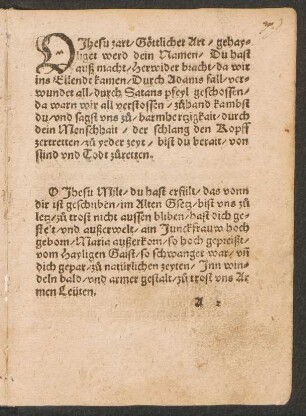 O Jhesu zart / Göttlicher Art / gehay-
liget werd dein Namen / Du hast
auß macht / Herwider bracht / da wir
ins Ellendt kamen / Durch Adams fall / ver-
wundet all / durch Satans pfeyl geschossen /
da warn wir all verstossen / zůhand kambst
du / vnd sagst vns zů / barmhertzigkait / durch
dein Menschhait / der schlang den Kopff
zertretten / zů yeder zeyt / bist du berait / von
sünd vnd Todt züretten.
O Jhesu Milt / du hast erfült / das vonn
dir ist geschriben / im Alten Gsetz / bist vns zů
letz / zů trost nicht aussen bliben / hast dich ge-
stelt / vnd außerwelt / ain Junckfraw hoch
geborn / Maria außerkorn / so hoch gepreißt /
vom Hayligen Gaist / so schwanger war / vñ
dich gepar / zů natürlichen zeyten / Inn win-
deln bald / vnd armer gestalt / zů trost vns Ar-
men Leüten.
A 2